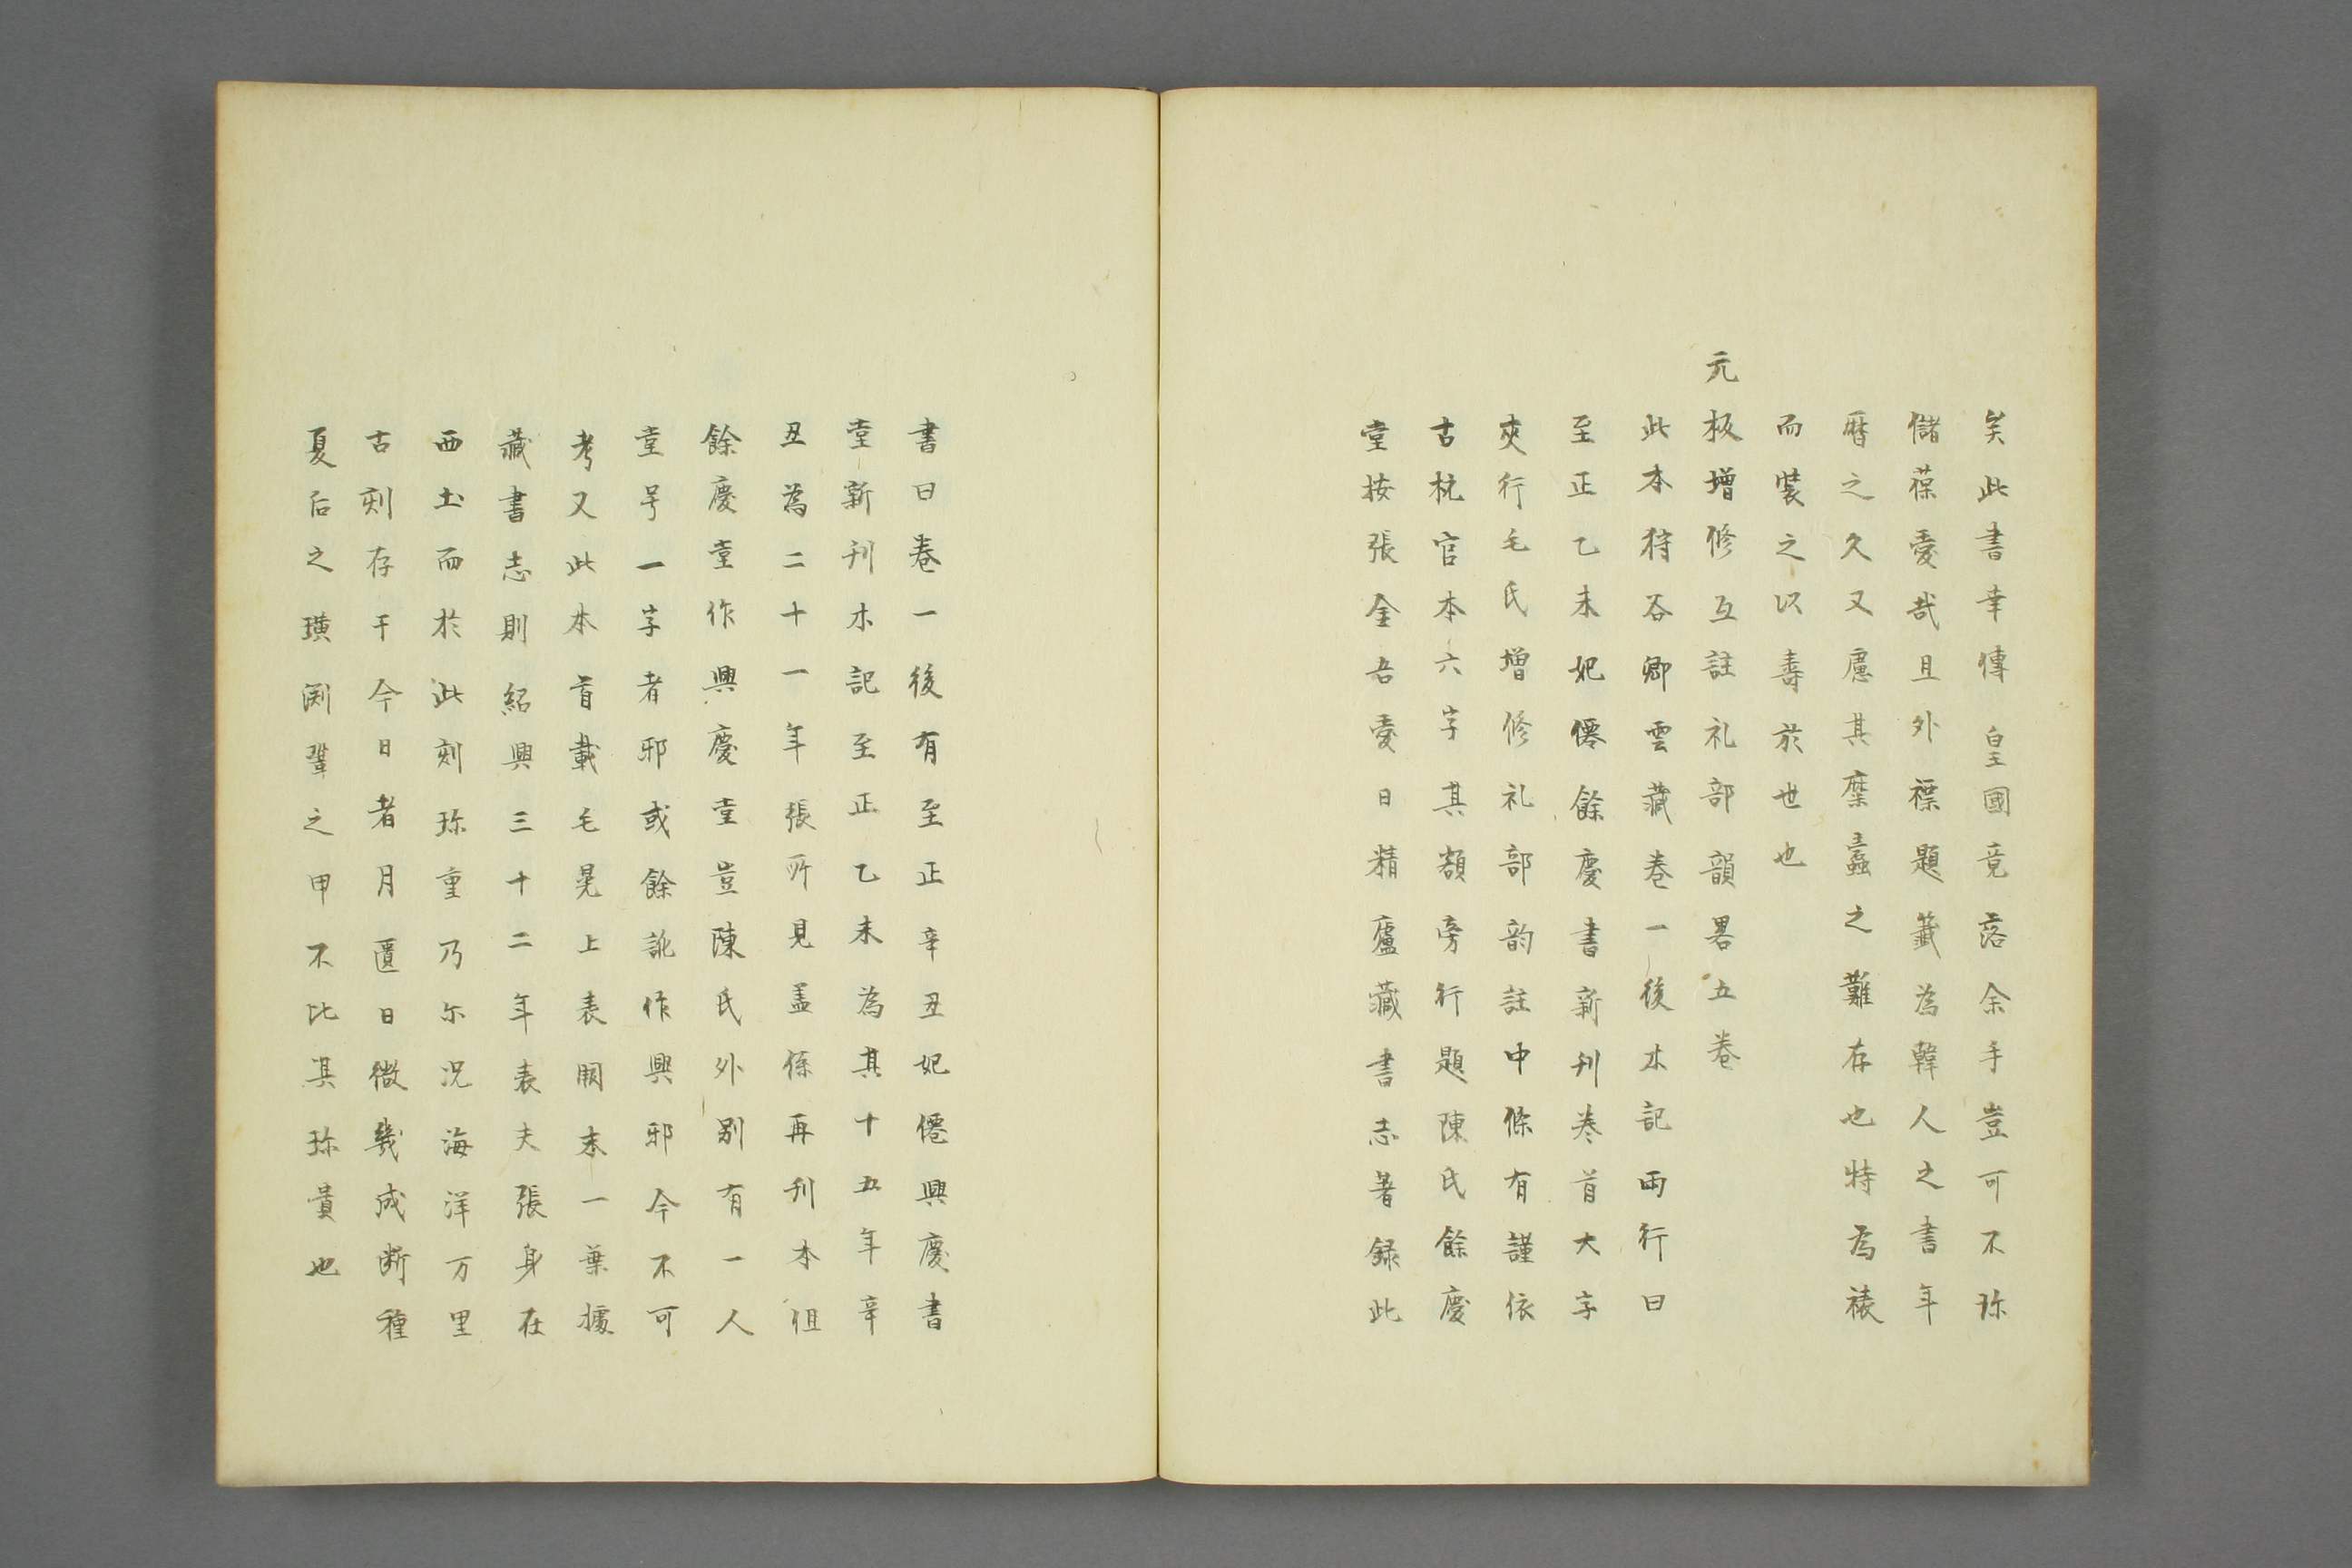 矣此書幸傳 皇國竟落余手豈可不珎
儲葆愛哉且外褾題籤為韓人之書年
曆之久又慮其糜蠧之難存也特為裱
而裝之以壽於世也
元板增修互註礼部韻畧五卷
此本狩谷卿雲藏卷一後木記兩行曰
至正乙未妃僊餘慶書新刊卷首大字
夾行毛氏增修礼部韵註中條有謹依
古杭官本六字其額旁行題陳氏餘慶
堂按張金吾愛日精廬藏書志著録此
書曰卷一後有至正辛丑妃僊興慶書
堂新刊木記至正乙未為其十五年辛
丑為二十一年張所見盖係再刊本但
餘慶堂作興慶堂豈陳氏外別有一人
堂号一字者邪或餘訛作興邪今不可
考又此本首載毛晃上表闕末一葉據
藏書志則紹興三十二年表夫張身在
西土而於此刻珎重乃尓况海洋万里
古刻存于今日者月匱日微幾成断種
夏后之璜闕鞏之甲不比其珎貴也